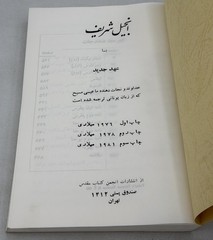 انجیل شریف
یا
عهد جدید
خداوند و نجات دهنده ما عیسی مسیح
که از زبان یونانی ترجمه شده است
چاپ اول ۱۹۷۶ میلادی
چاپ دوم ۱۹۷۸ میلادی
چاپ سوم ۱۹۸۱ میلادی
از انتشارات انجمن کتاب مقدس
صندوق پستی ۱۴۱۲
تهران